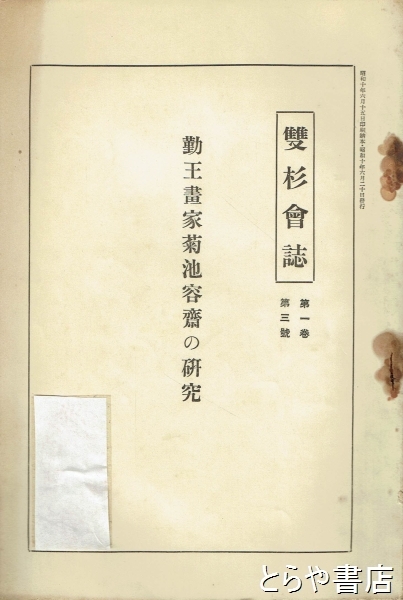 昭和十年六月十五日印刷納本・昭和十年六月二十日発行
雙杉會誌
第一卷
第三號
勤王畫家菊池容齋の硏究
とらや書店